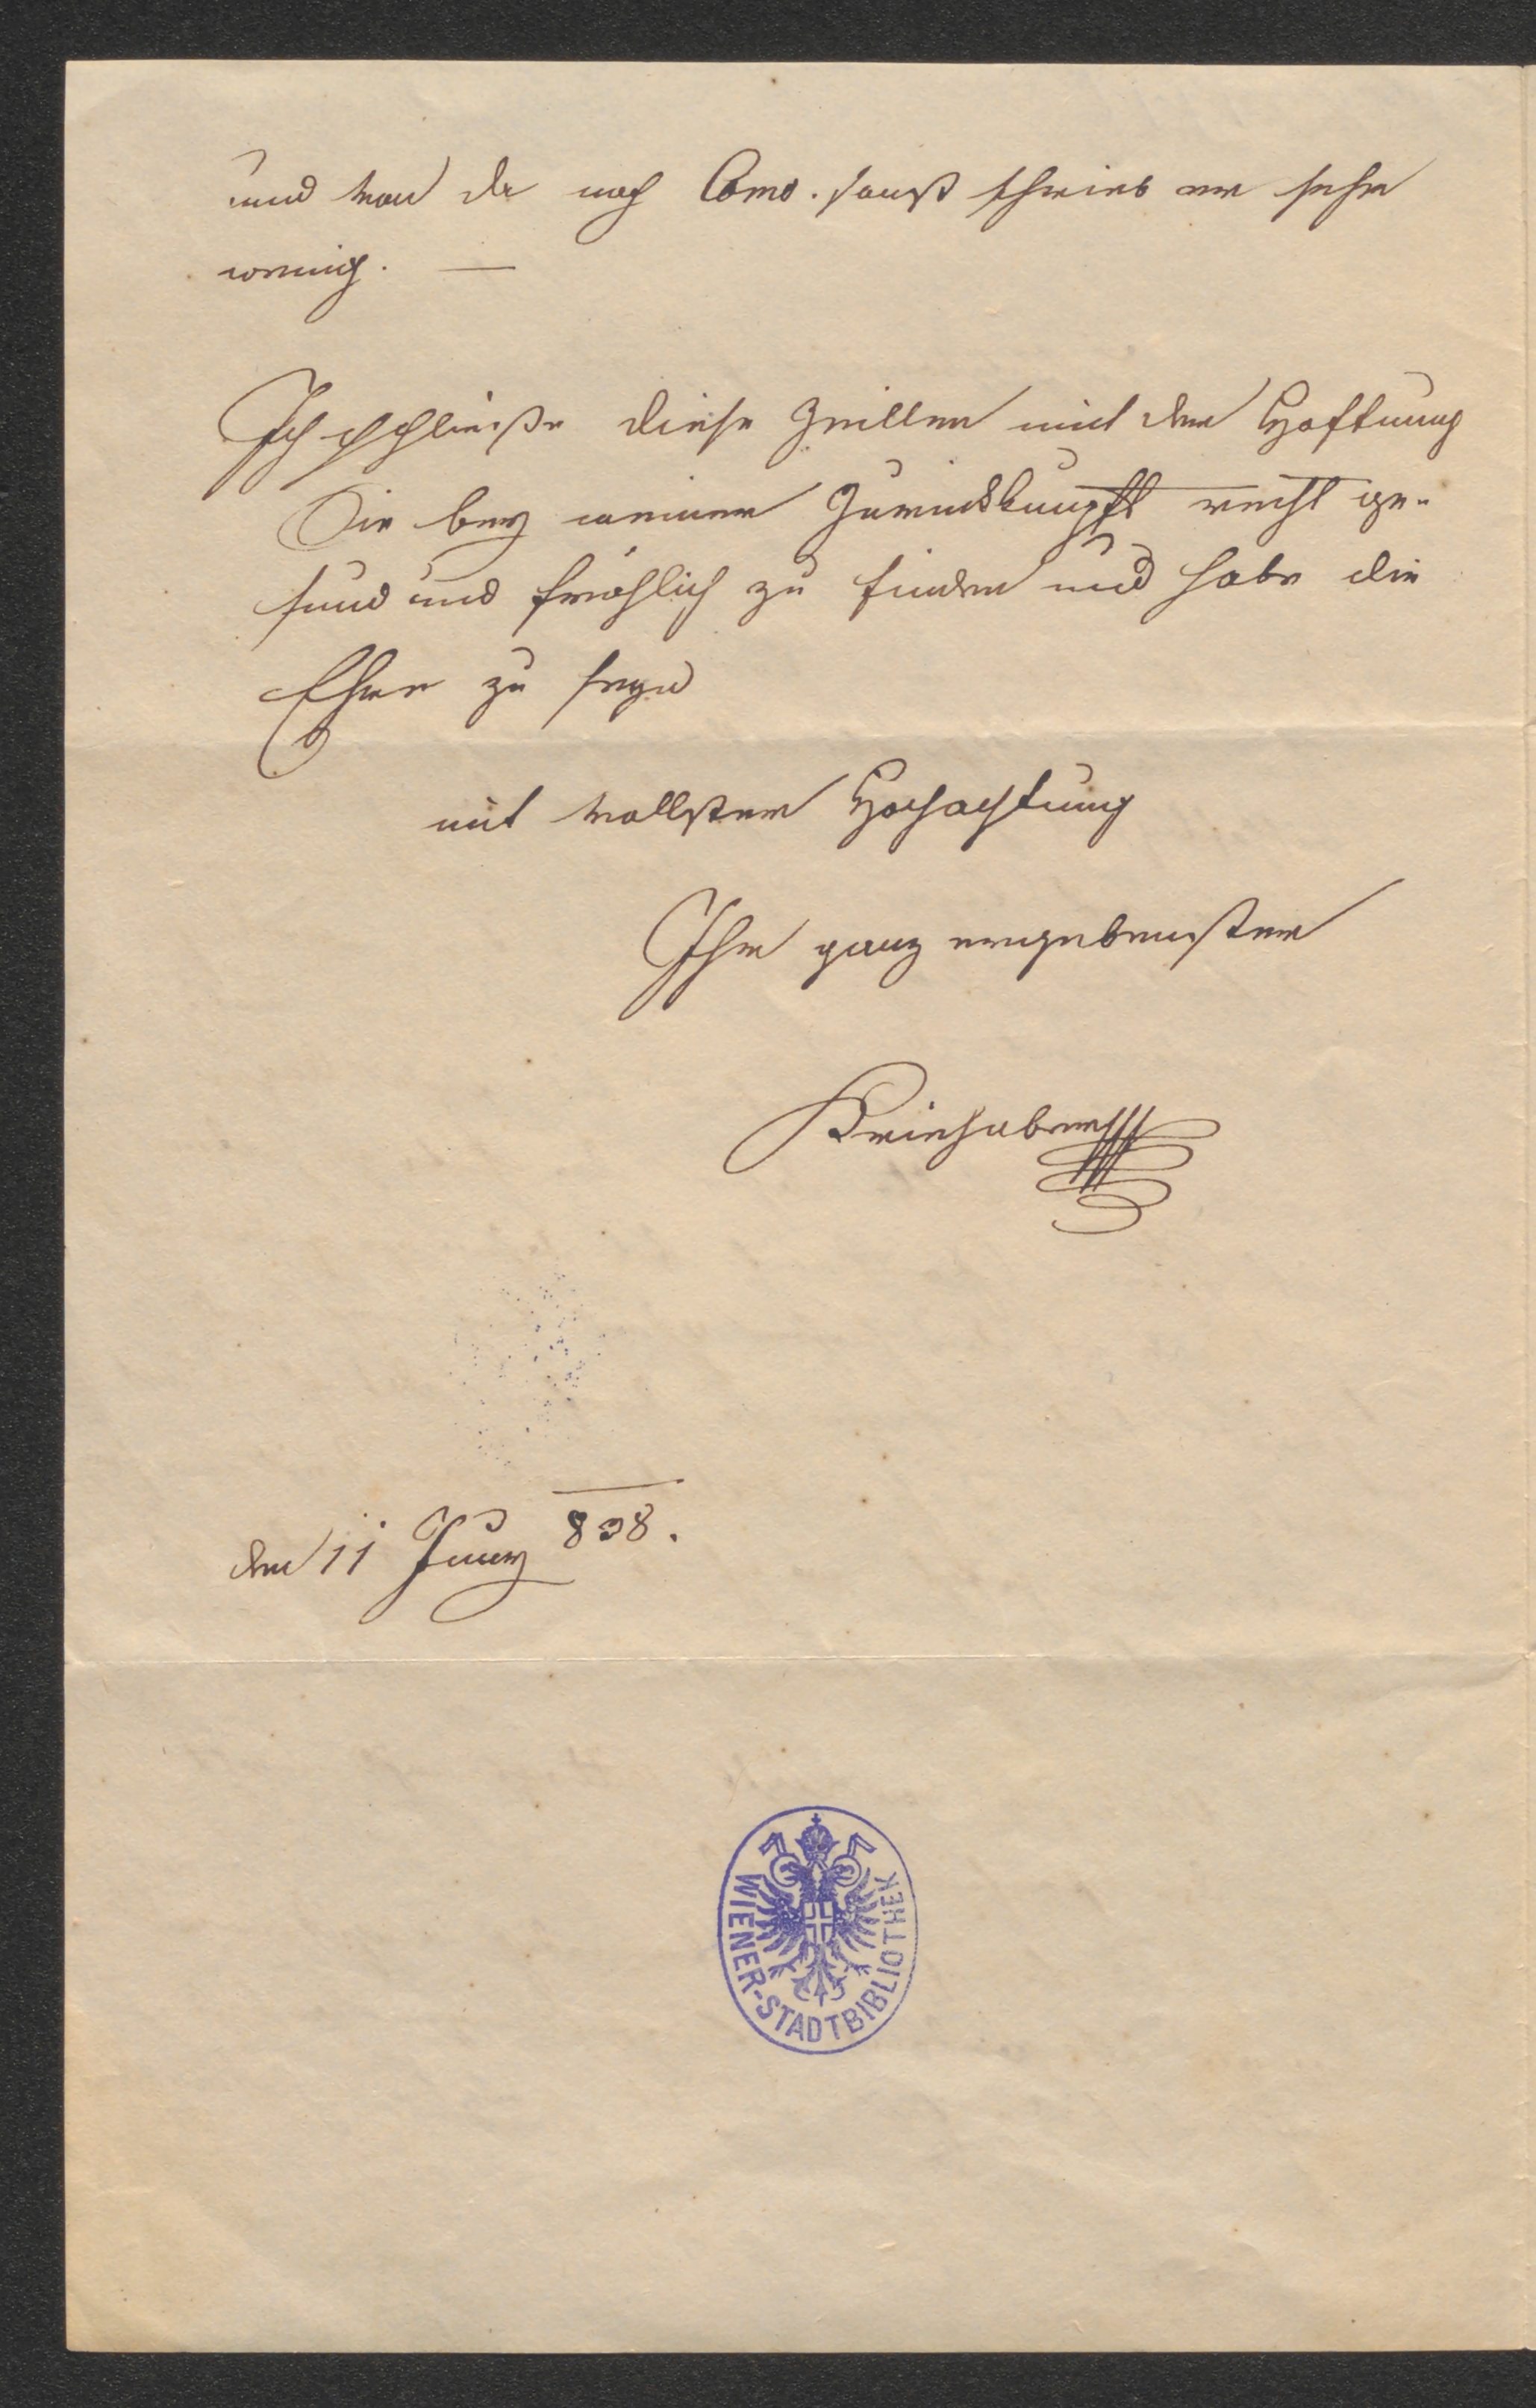 und von da nach Como. sonst schrieb er sehr
wenig. —
Ich schließe diese Zeillen mit der Hoffnung
Sie bey meiner Zurückkunpft recht ge-
sund und fröhlich zu finden und habe die
Ehre zu seyn
mit vollster Hochachtung
Ihr ganz ergebenster
Kriehuber
den 11 Juny 838.
WIENER-STADTBIBLIOTHEK